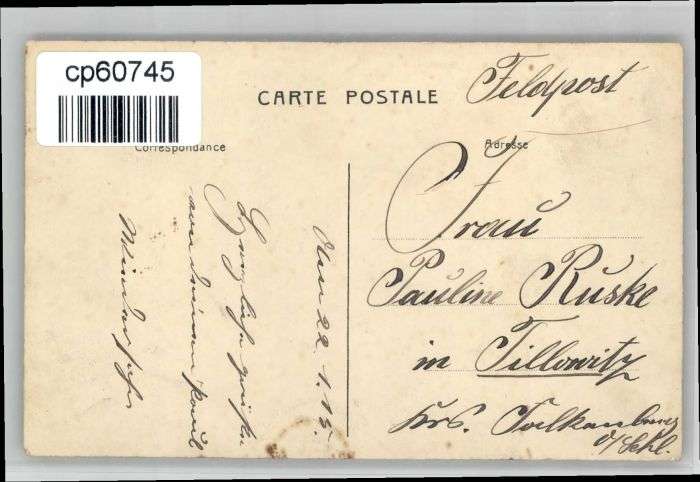 cp60745
CARTE POSTALE
Feldpost
Correspondance
Adresse
Frau
Pauline Ruske
in Tillowitz
Krs. Falkenberg
O/Schl.
den 22.1.15.
Herzliche Grüße
Paul
Wiedersehn